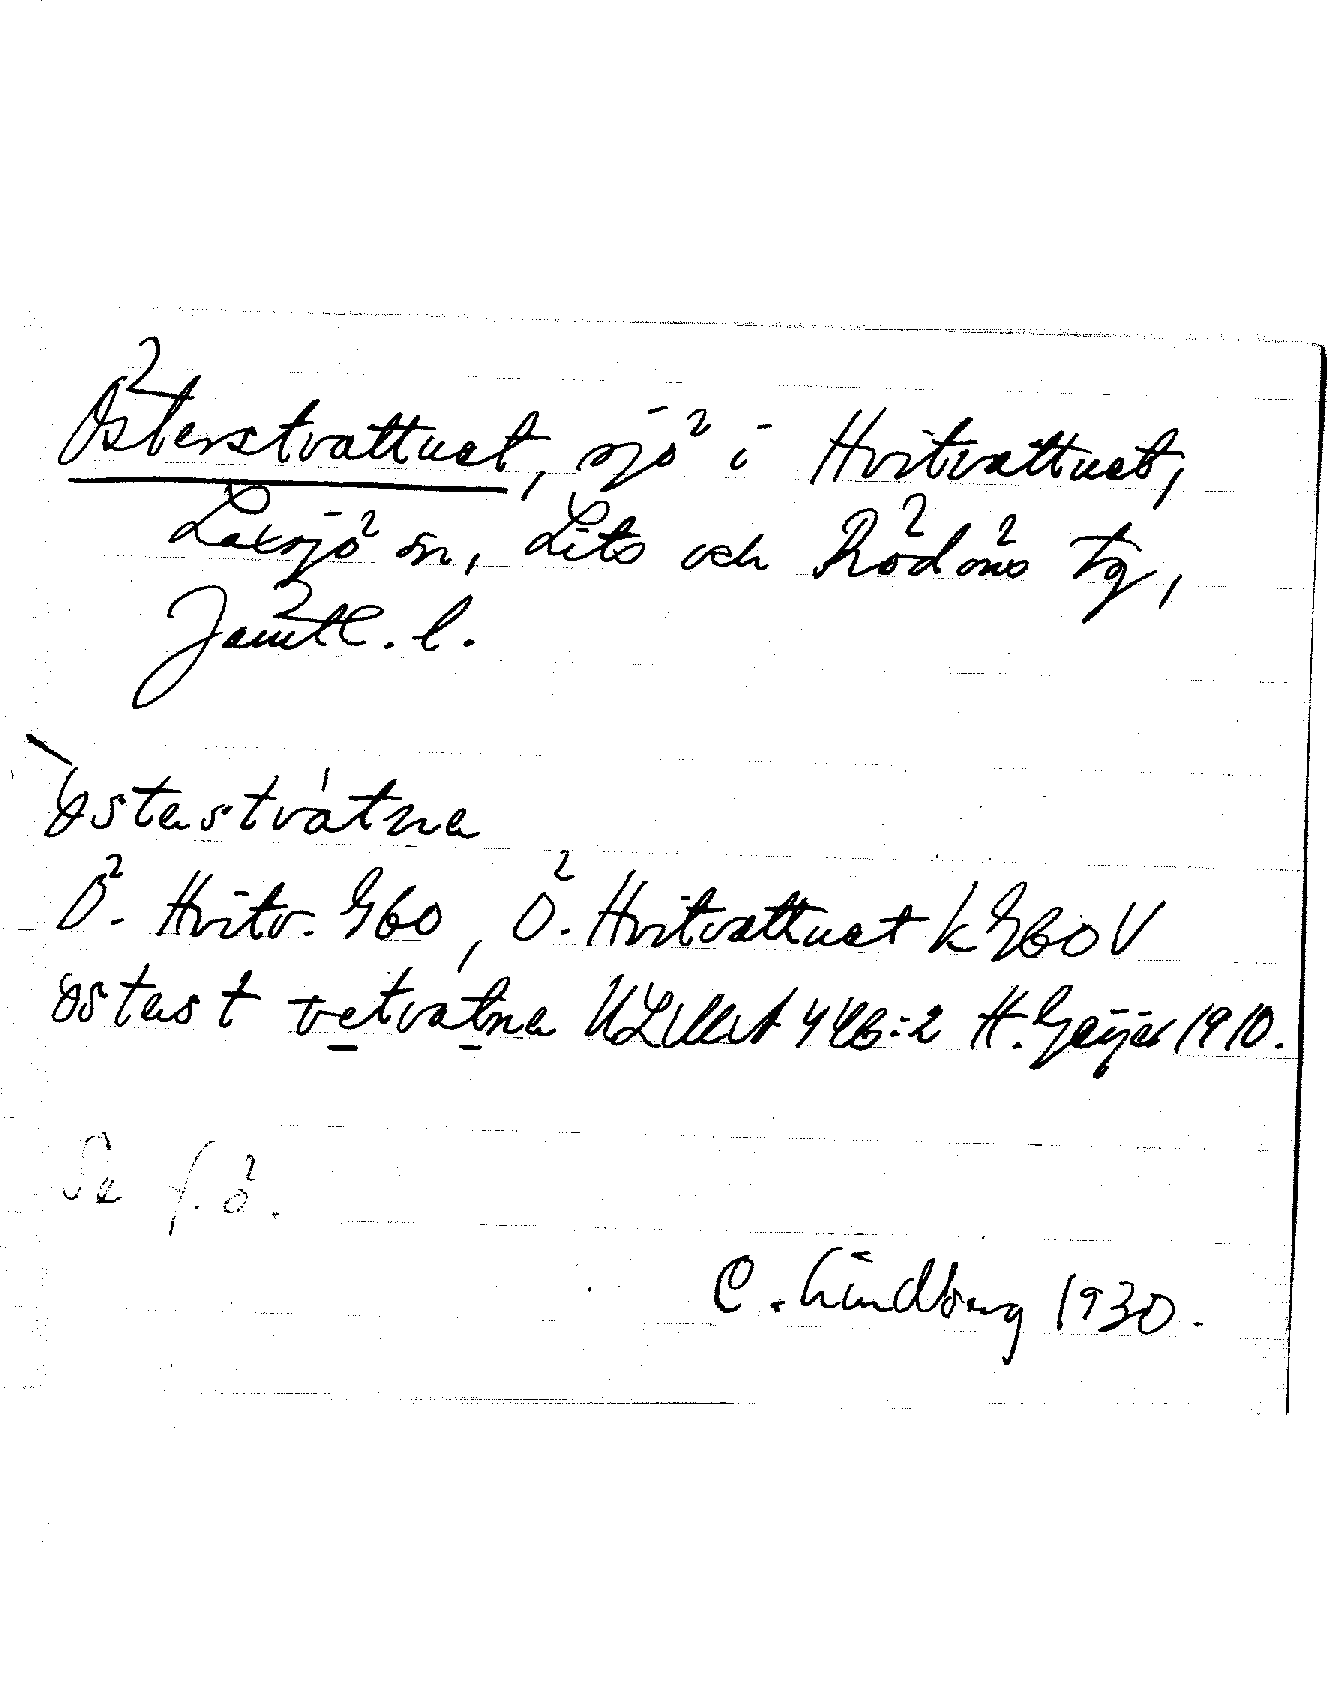 Österstvattnet, sjö i Hvitvattnet,
Laxsjö sn, Lits och Rödöns tg,
Jämtl. l.
østastvátna
Ö. Hvitv. G60, Ö. Hvitvattnet k G60V
østast vetvatna H. Geijer 1910.
Se f. ö.
C. Lindberg 1930.